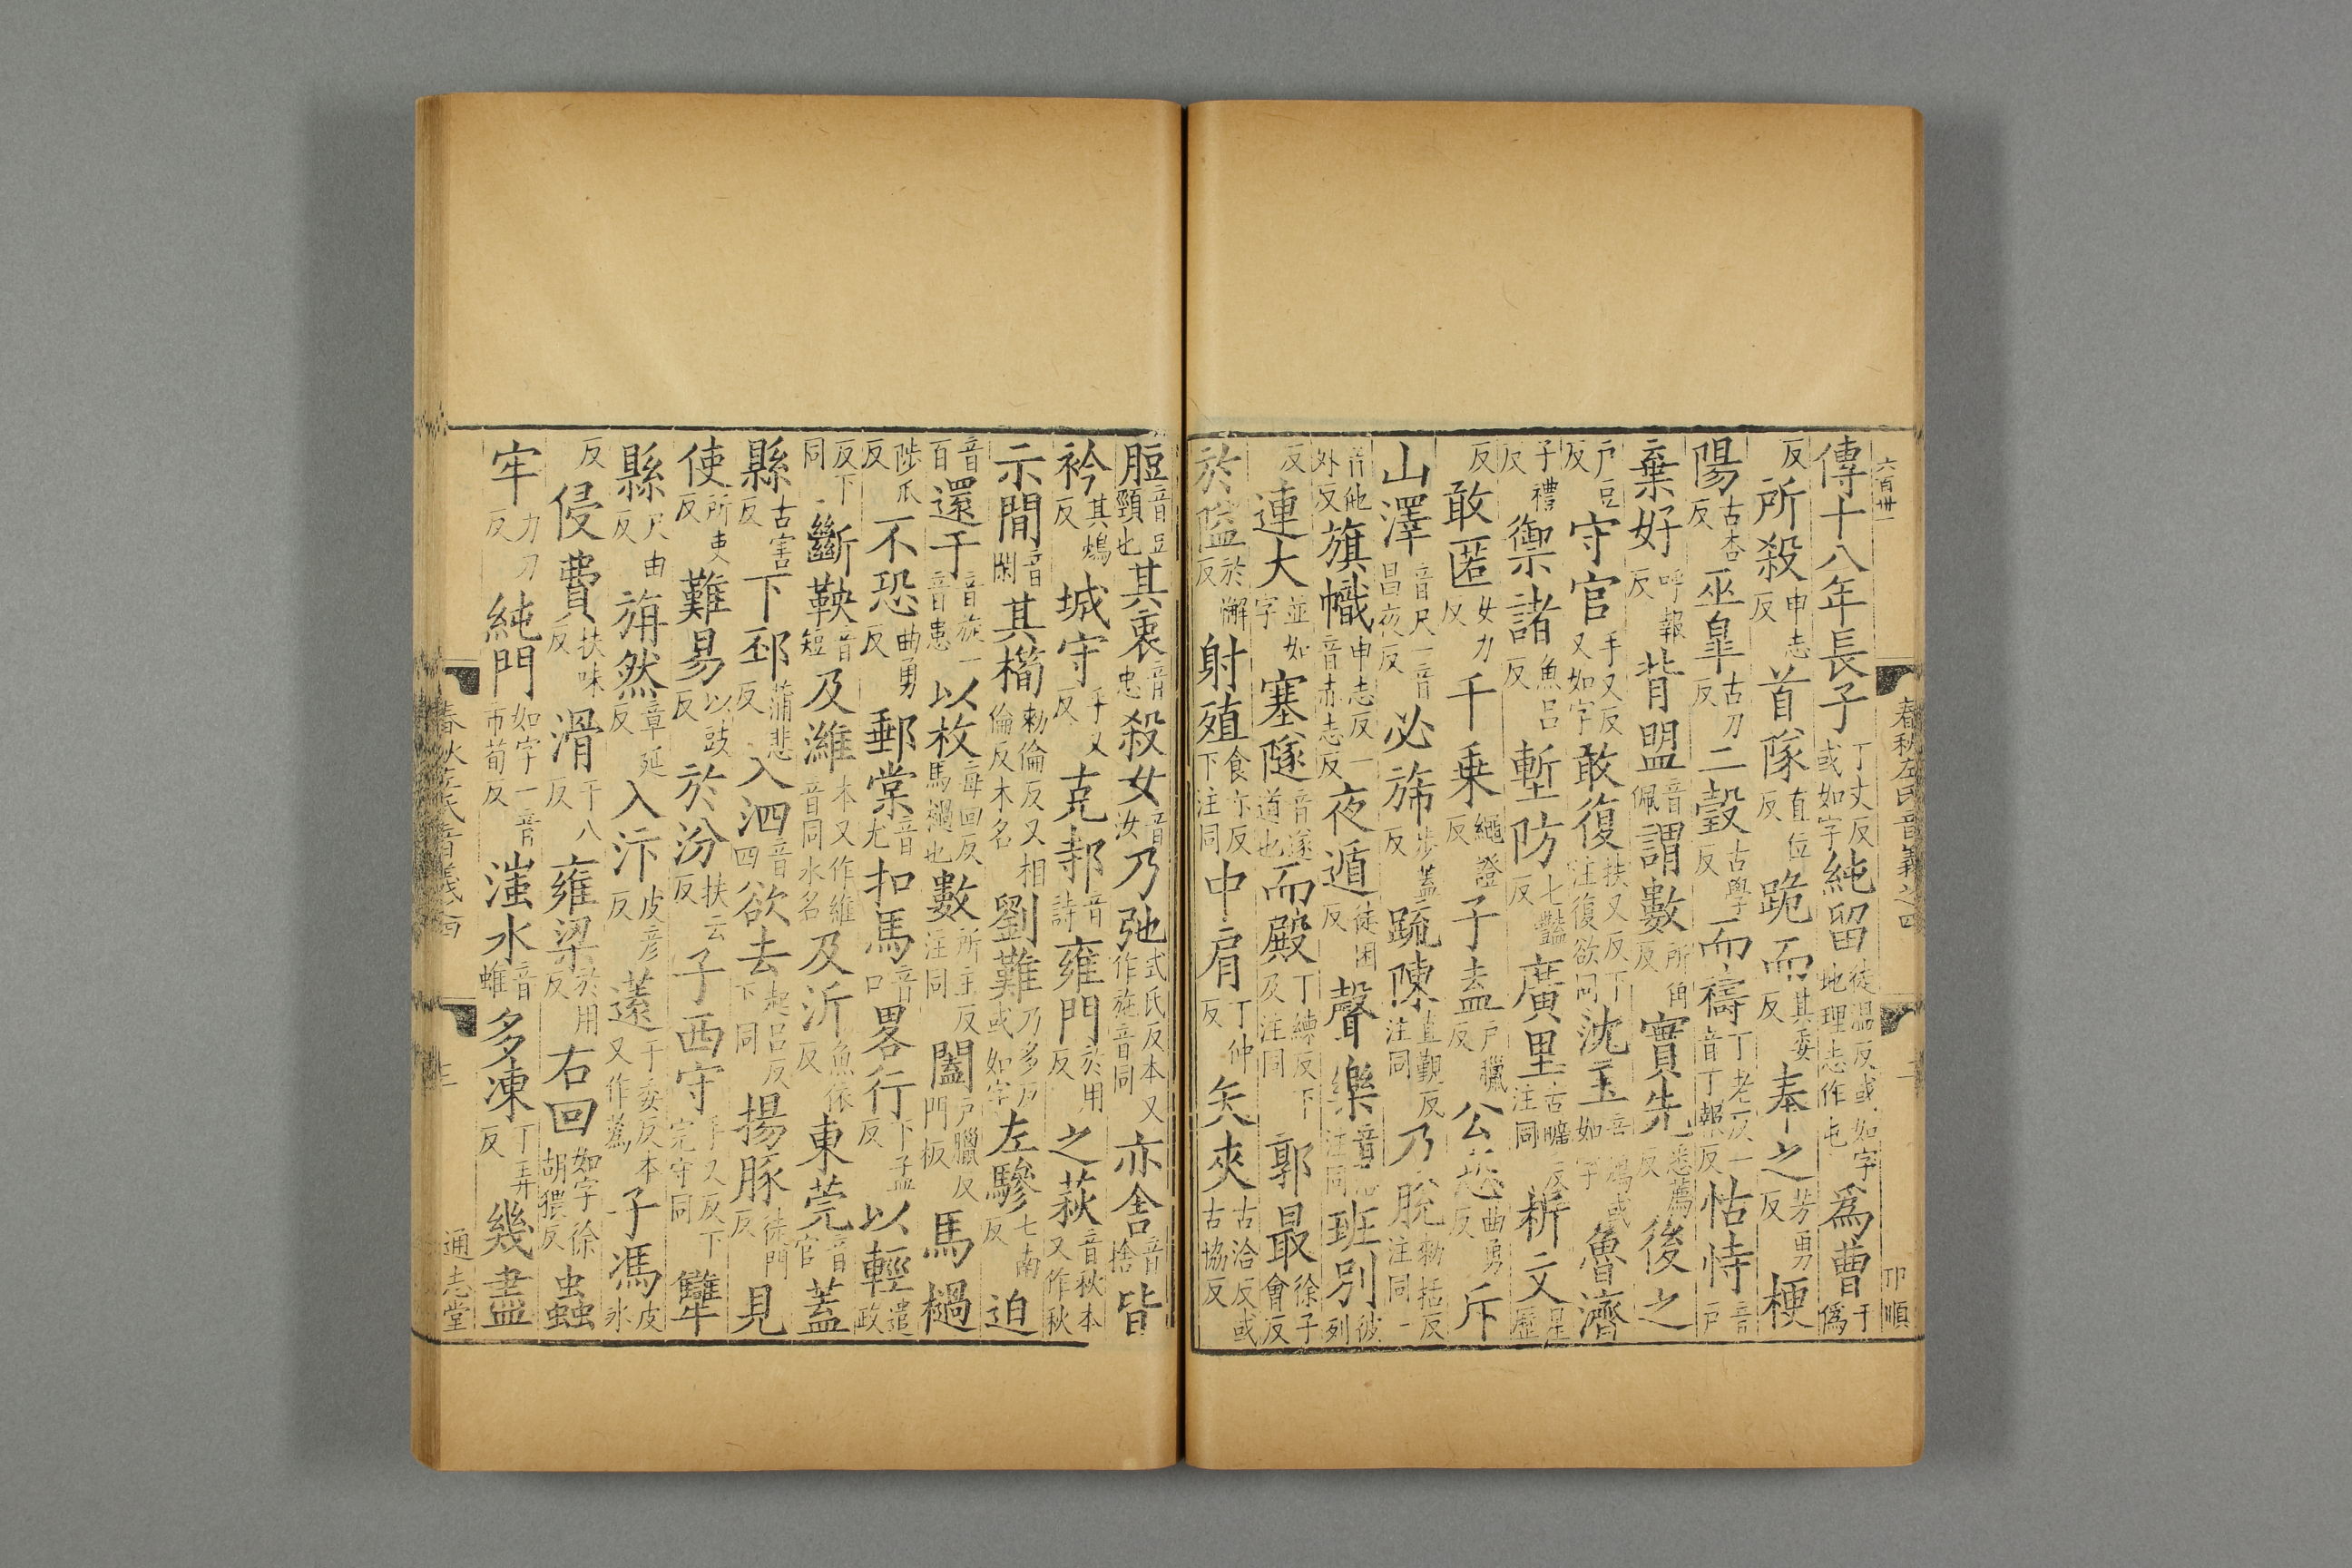 六百卅一
春秋左氏音義之四
卬順
傳十八年長子丁丈反或如字純留徒溫反或如字地理志作屯爲曹于僞
反所殺申志反首隊直位反跪而其委反奉之芳勇反梗
陽古杏反巫臯古刀反二瑴古學反而禱丁老反一音丁報反怙恃音戶
棄好呼報反背盟音佩謂數所角反實先悉薦反後之
戶豆反守官手又反又如字敢復扶又反下注復欲同沈玉如字魯濟
子禮反禦諸魚呂反塹防七豔反廣里古曠反注同析文星歷
反敢匿女力反千乗繩證反子盍戶臘反公恐曲勇反斥
山澤音尺一音昌夜反必斾步蓋反疏陳直覲反注同乃脫勑括反注同一
音他外反旗幟申志反一音赤志反夜遁徒困反聲樂注同班別彼列
反連大並如字塞隧音遂道也而殿丁練反下及注同郭最徐子會反
於隘於懈反射殖食亦反下注同中肩丁仲反矢夾古洽反或古協反
脰音豆頸也其衷音忠殺女音汝乃弛式氏反本又作施音同亦舍音捨皆
衿其鴆反城守手又反克邿音詩雍門於用反之萩音秋本又作秋
示閒音閑其橁勑倫反又相倫反木名劉難乃多反或如字左驂七南反迫
音百還于音旋一音患以枚每回反馬檛也數所主反注同闔戶臘反門板馬檛
陟瓜反不恐曲勇反郵棠音尤扣馬音口畧行下孟反以輕遣政
反下同斷鞅音短及濰本又作維音同水名及沂魚依反東莞音官蓋
縣古害反下邳蒲悲反入泗音四欲去起呂反下同揚豚徒門反見
使所吏反難易以豉反於汾扶云反子西守手又反下完守同犨
縣尺由反旃然章延反入汴皮彦反薳于委反本又作蒍子馮皮冰
反侵費扶味反滑于八反雍梁於用反右回如字徐胡猥反蟲
牢力刀反純門如字一音市荀反滍水音雉多凍丁弄反幾盡
三
通志堂